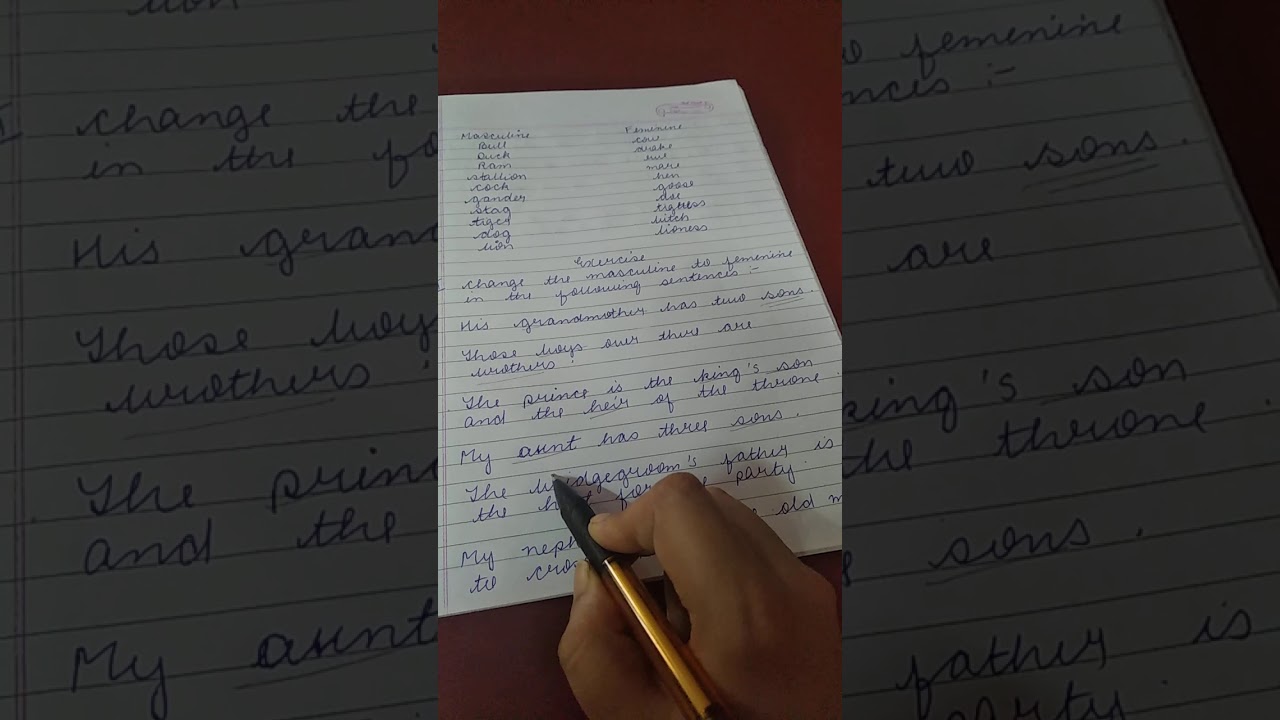 Masculine Femenine
Bull cow
Duck drake
Ram ewe
stallion mare
cock hen
gander goose
stag doe
tiger tigress
dog bitch
lion lioness
Exercise
I change the masculine to femenine
in the following sentences :-
His grandmother has two sons.
Those boys over there are
brothers.
The prince is the king's son
and the heir of the throne.
My aunt has three sons.
The bridgegroom's father is
the for party.
My neph old m
to cros